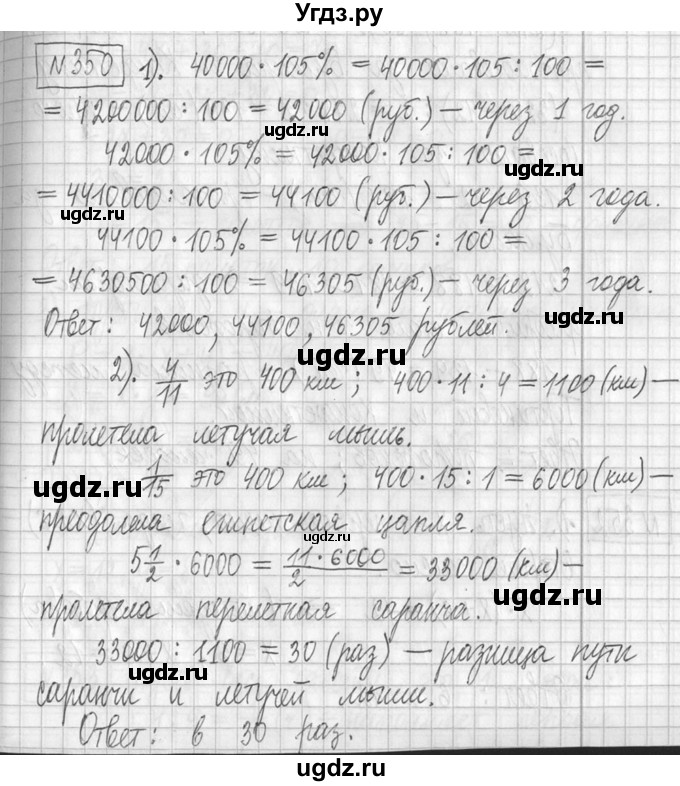 Угдз.ру
№350 1). 40000 · 105% = 40000 · 105 : 100 =
= 4200000 : 100 = 42000 (руб.) – через 1 год.
ugdz.ru
42000 · 105% = 42000 · 105 : 100 =
ugdz.ru
= 4410000 : 100 = 44100 (руб.) – через 2 года.
ugdz.ru
44100 · 105% = 44100 · 105 : 100 =
= 4630500 : 100 = 46305 (руб.) – через 3 года.
Ответ: 42000, 44100, 46305 рублей.
ugdz.ru
2). 4/11 это 400 км; 400 · 11 : 4 = 1100 (км) –
пролетела летучая мышь.
1/15 это 400 км; 400 · 15 : 1 = 6000 (км) –
ugdz.ru
преодолела египетская цапля.
ugdz.ru
5 1/2 · 6000 = 11 · 6000/2 = 33000 (км) –
ugdz.ru
пролетела перелетная саранча.
33000 : 1100 = 30 (раз) – разница пути
ugdz.ru
саранчи и летучей мыши.
Ответ: в 30 раз.
ugdz.ru
ugdz.ru